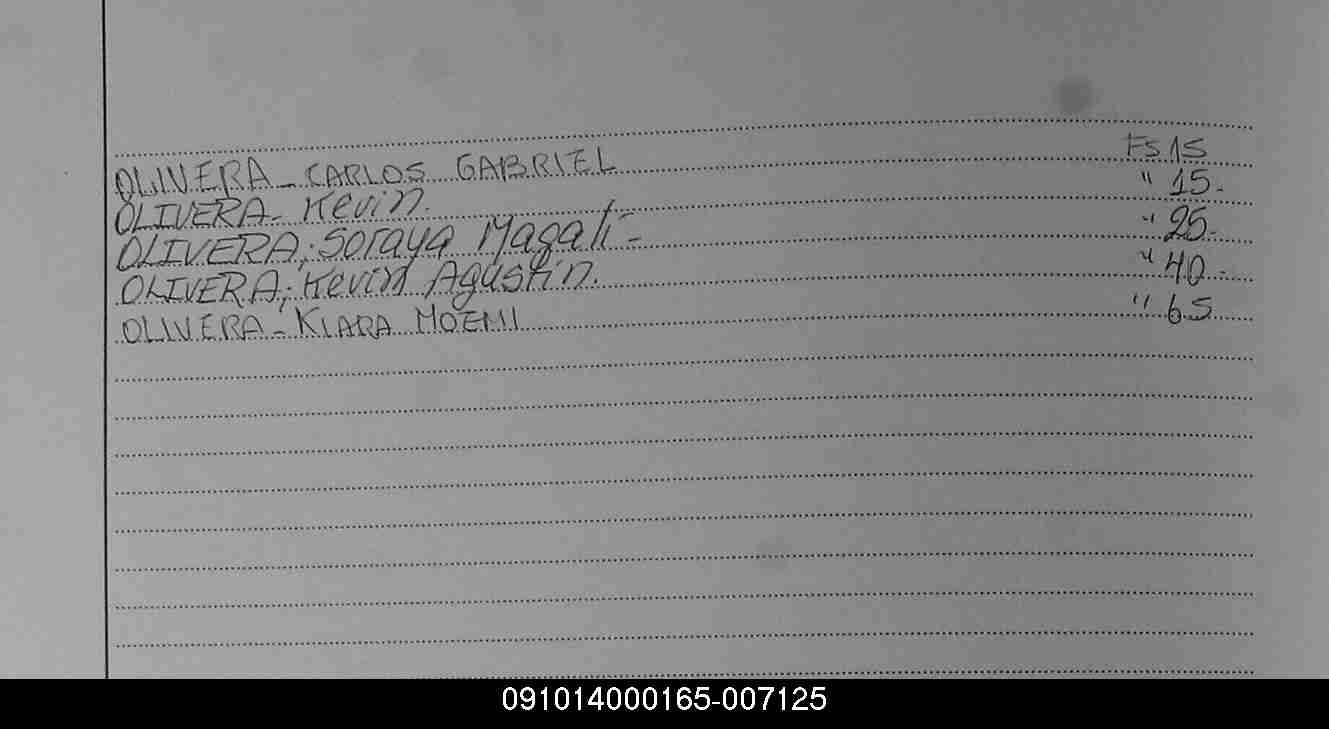 OLIVERA - CARLOS GABRIEL Fs 15
OLIVERA - Kevin. " 15.
OLIVERA; Soraya Magali - " 25-
OLIVERA; Kevin Agustin. " 40 -
OLIVERA - KIARA NOEMI " 65
091014000165-007125